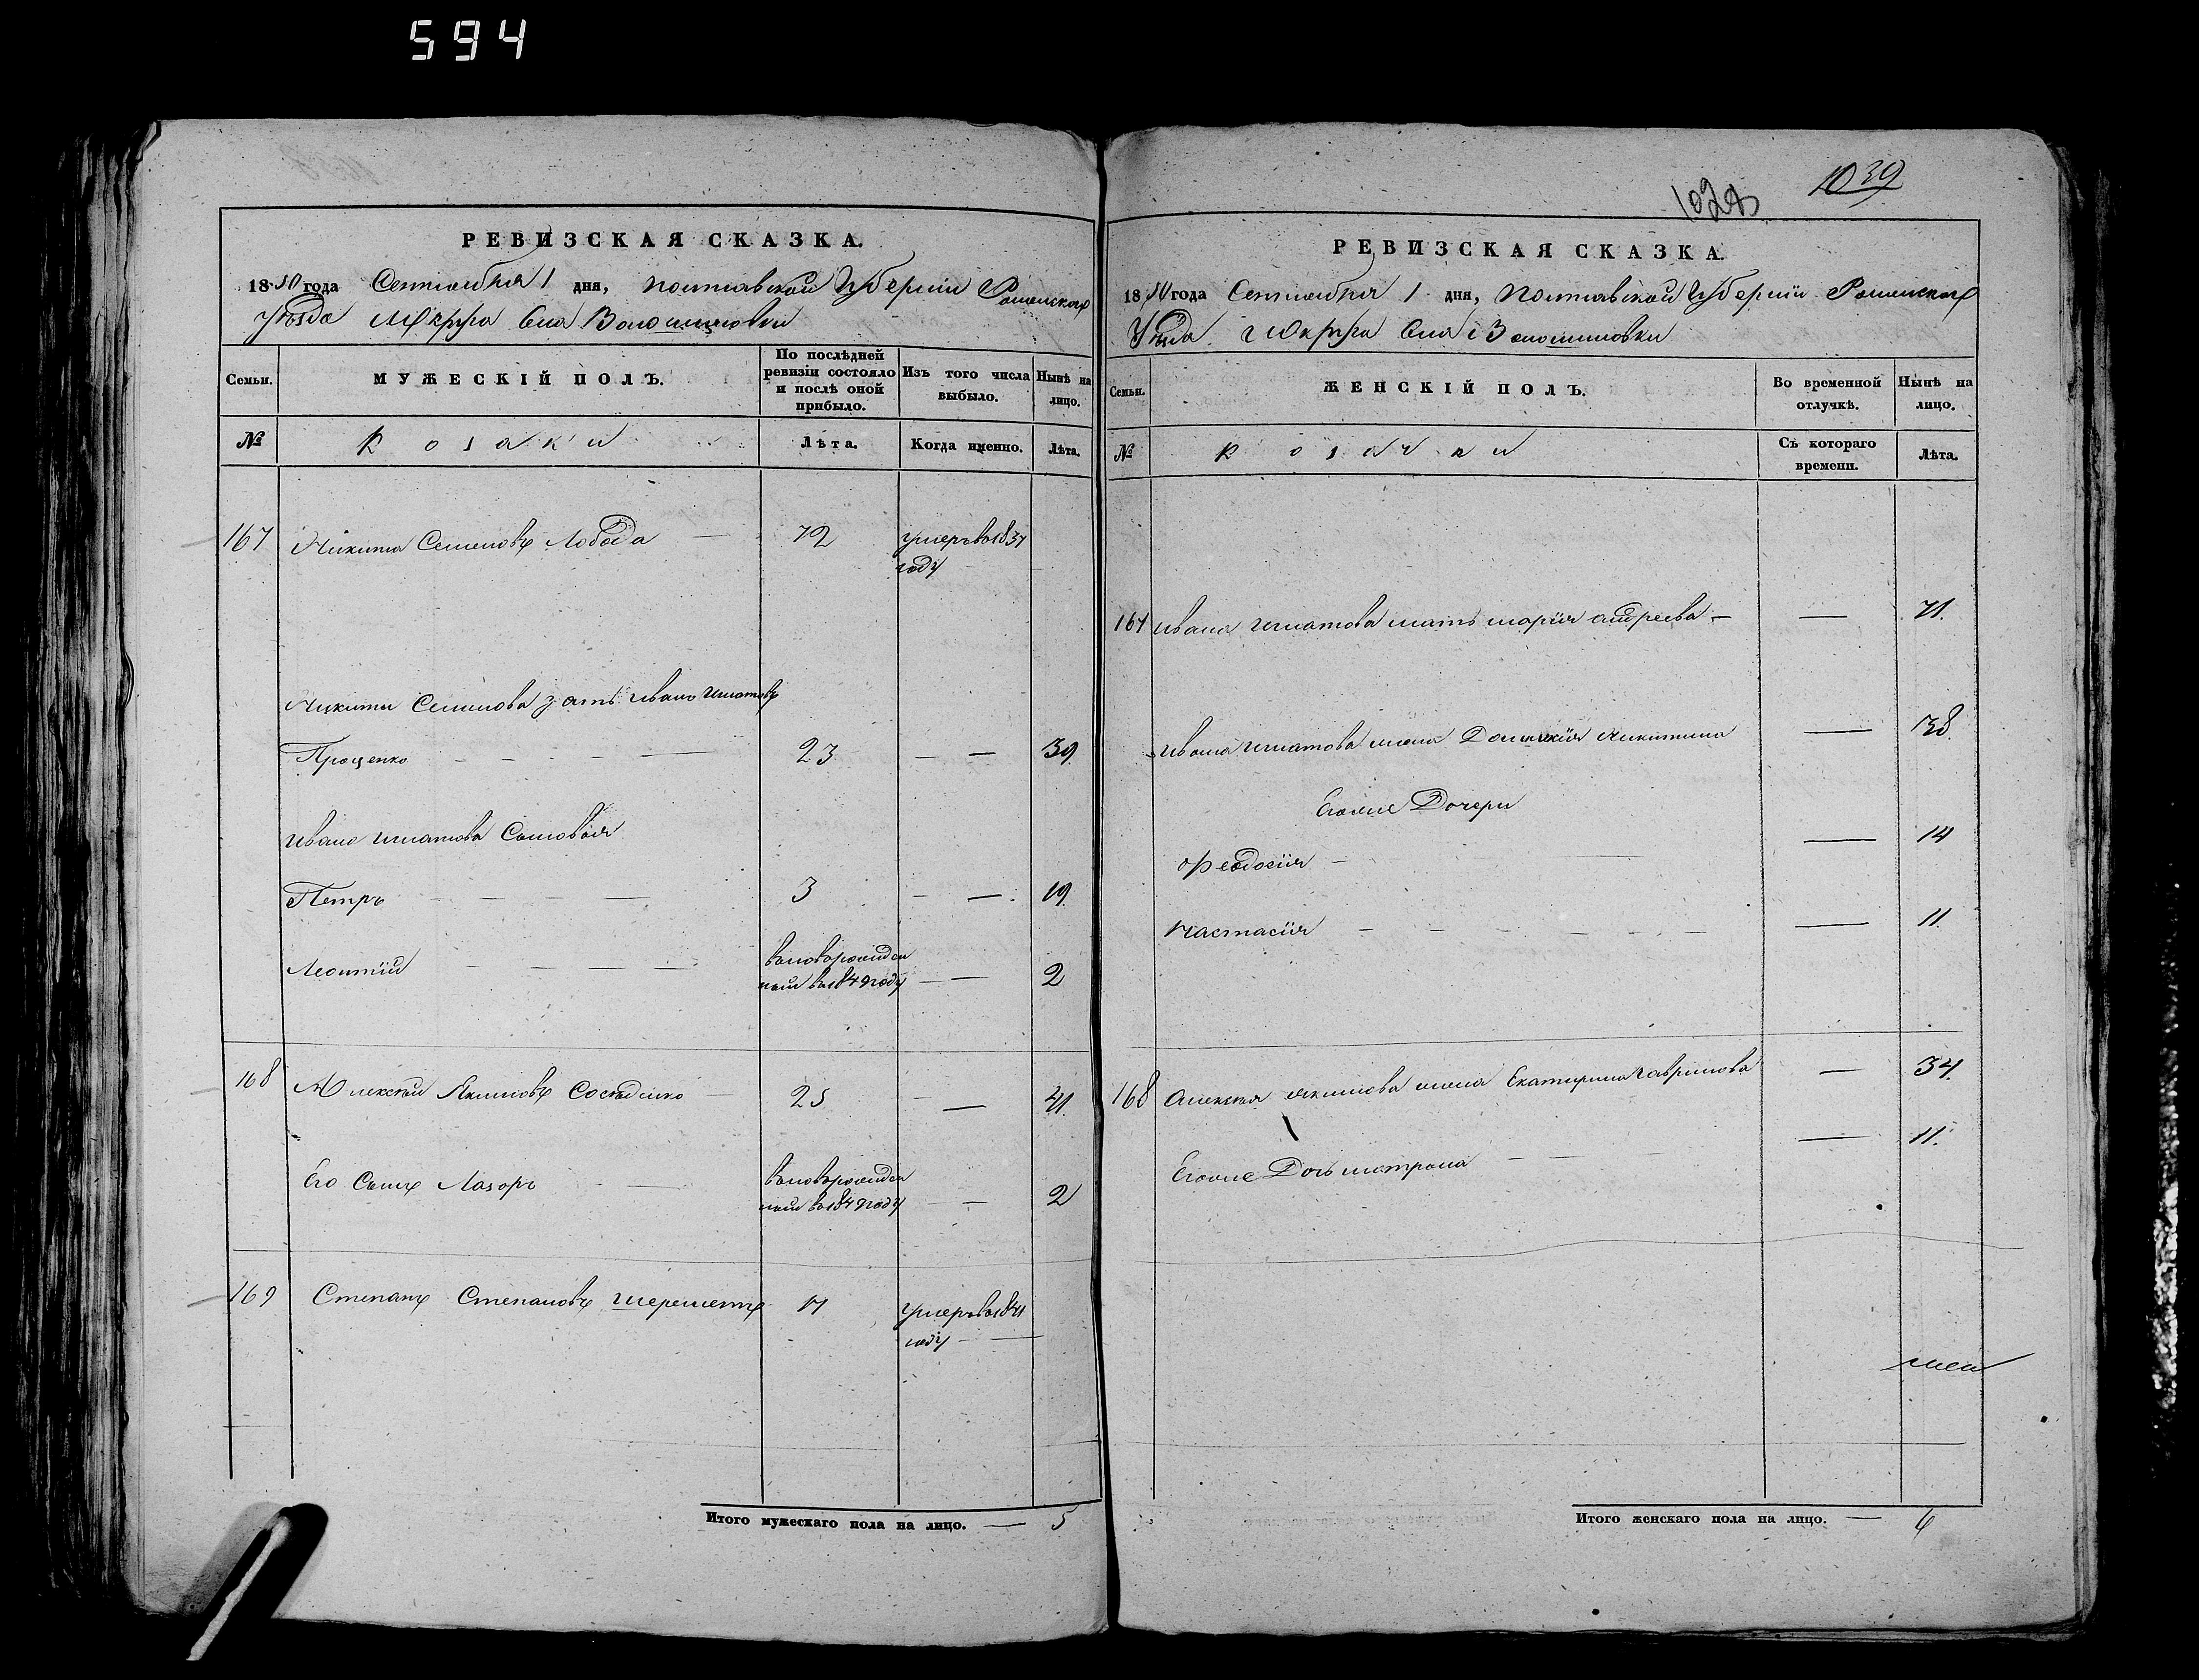 594
1039
1028
РЕВИЗСКАЯ СКАЗКА.
1850 года Сентября 1 дня, Полтавской Губерніи Роменскаго
Уѣзда Округа Села Волошиновки
Семьи.
МУЖЕСКІЙ ПОЛЪ.
По послѣдней ревизіи состояло и послѣ оной прибыло.
Изъ того числа выбыло.
Нынѣ на лицо.
№
Козаки
Лѣта.
Когда именно.
Лѣта.
167 Никита Семеновъ Лобода 72 умеръ во 1837
году
Никиты Семенова зять Иванъ Игнатовъ
Проценко 23 — 39
Ивана Игнатова Сыновья
Петръ 3 — 19
Леонтій вновьрожден
ный во 1849 году — 2
168 Алексѣй Якимовъ Сосѣденко 25 — 41
Его Сынъ Лазорь вновьрожден
ный во 1849 году — 2
169 Степанъ Степановъ Шереметъ умеръ во 1841
году
Итого мужескаго пола на лицо. — 5
РЕВИЗСКАЯ СКАЗКА.
1850 года Сентября 1 дня, Полтавской Губерніи Роменскаго
Уѣзда Округа Села Волошиновки
Семьи.
ЖЕНСКІЙ ПОЛЪ.
Во временной отлучкѣ.
Нынѣ на лицо.
№
Козачки
Съ котораго времени.
Лѣта.
167 Ивана Игнатова мать Марія Андреева — 71
Ивана Игнатова жена Домникія Никитина — 38
Егоже Дочери
Феодосія — 14
Настасія — 11
168 Алексѣя Якимова жена Екатерина Гаврилова — 34
Егоже Дочь Матрона — 11
Итого женскаго пола на лицо. — 6